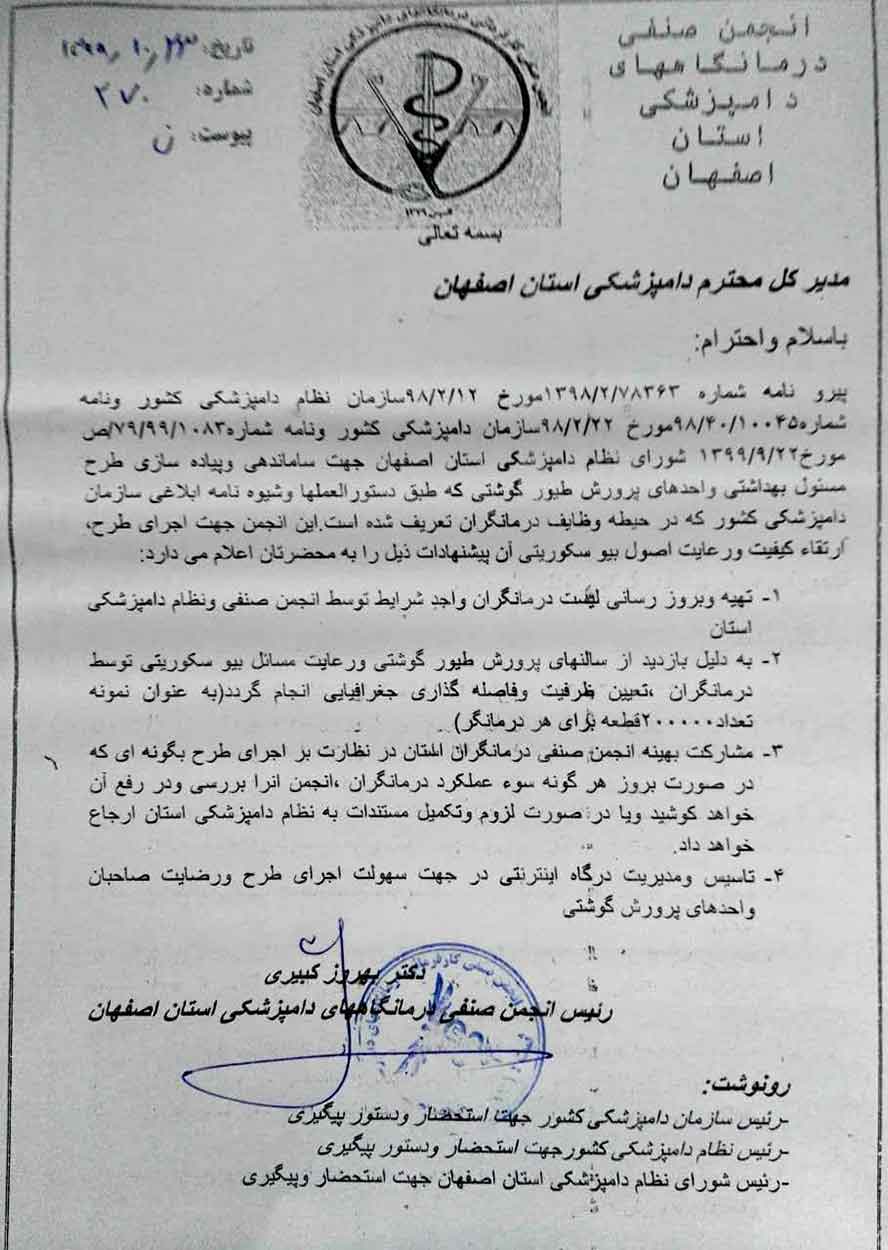 انجمن صنفی
درمانگاههای
دامپزشکی
استان
اصفهان
تاریخ: ۱۳۹۹/۱۰/۲۳
شماره: ۲۷۰
پیوست: ن
بسمه تعالی
مدیر کل محترم دامپزشکی استان اصفهان
باسلام واحترام:
پیرو نامه شماره ۱۳۹۸/۲/۷۸۳۶۳مورخ ۹۸/۲/۱۲سازمان نظام دامپزشکی کشور ونامه
شماره۹۸/۴۰/۱۰۰۴۵مورخ ۹۸/۲/۲۲سازمان دامپزشکی کشور ونامه شماره۷۹/۹۹/۱۰۸۳/ص
مورخ۱۳۹۹/۹/۲۲ شورای نظام دامپزشکی استان اصفهان جهت ساماندهی وپیاده سازی طرح
مسئول بهداشتی واحدهای پرورش طیور گوشتی که طبق دستورالعملها وشیوه نامه ابلاغی سازمان
دامپزشکی کشور که در حیطه وظایف درمانگران تعریف شده است.این انجمن جهت اجرای طرح،
ارتقاء کیفیت ورعایت اصول بیو سکوریتی آن پیشنهادات ذیل را به محضرتان اعلام می دارد:
۱- تهیه وبروز رسانی لیست درمانگران واجد شرایط توسط انجمن صنفی ونظام دامپزشکی
استان
۲- به دلیل بازدید از سالنهای پرورش طیور گوشتی ورعایت مسائل بیو سکوریتی توسط
درمانگران ،تعیین ظرفیت وفاصله گذاری جغرافیایی انجام گردد(به عنوان نمونه
تعداد۲۰۰۰۰۰۰قطعه برای هر درمانگر)
۳- مشارکت بهینه انجمن صنفی درمانگران استان در نظارت بر اجرای طرح بگونه ای که
در صورت بروز هر گونه سوء عملکرد درمانگران ،انجمن انرا بررسی ودر رفع آن
خواهد کوشید ویا در صورت لزوم وتکمیل مستندات به نظام دامپزشکی استان ارجاع
خواهد داد.
۴- تاسیس ومدیریت درگاه اینترنتی در جهت سهولت اجرای طرح ورضایت صاحبان
واحدهای پرورش گوشتی
دکتر بهروز کبیری
رئیس انجمن صنفی درمانگاههای دامپزشکی استان اصفهان
رونوشت:
-رئیس سازمان دامپزشکی کشور جهت استحضار ودستور پیگیری
-رئیس نظام دامپزشکی کشورجهت استحضار ودستور پیگیری
-رئیس شورای نظام دامپزشکی استان اصفهان جهت استحضار وپیگیری